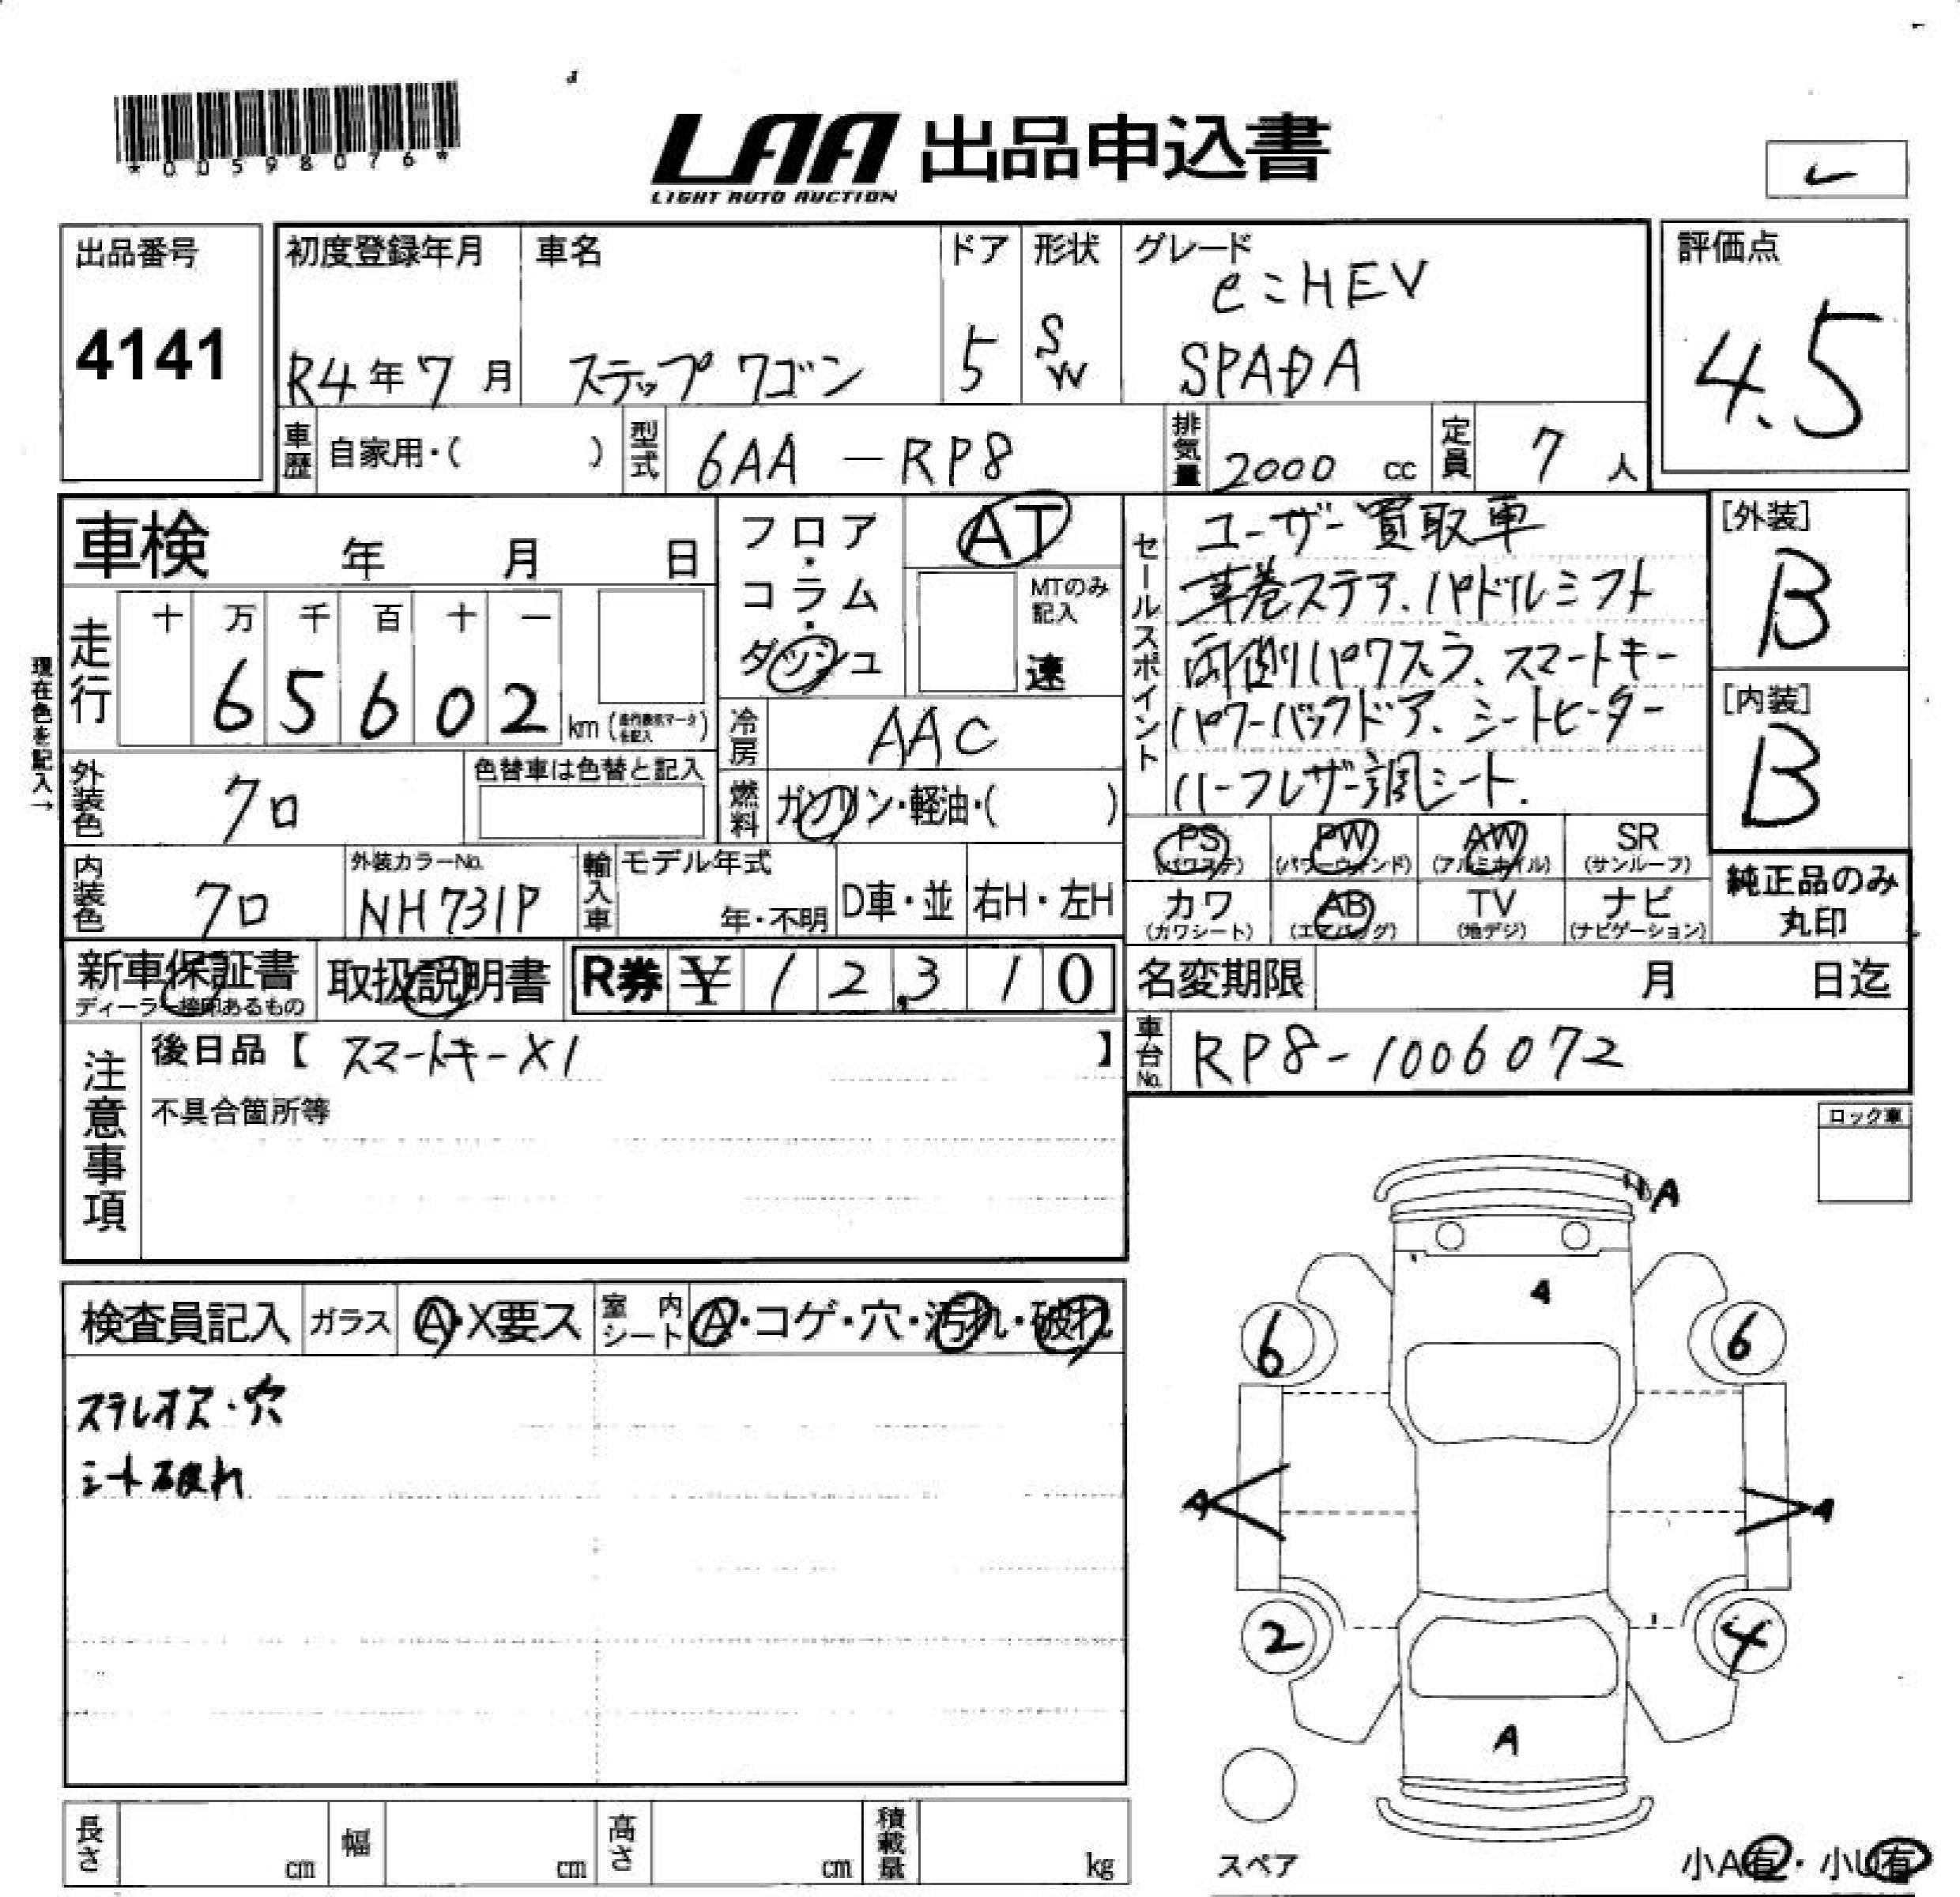 *00598076*
LAA 出品申込書
LIGHT AUTO AUCTION
出品番号
4141
初度登録年月
R4年7月
車名
ステップワゴン
ドア
5
形状
SW
グレード
e:HEV
SPADA
評価点
4.5
車歴
自家用・( )
型式
6AA-RP8
排気量
2000 cc
定員
7 人
車検 年 月 日
フロア・コラム・ダッシュ
AT
MTのみ記入
速
セールスポイント
ユーザー買取車
革巻ステア、パドルシフト
両側パワスラ、スマートキー
パワーバックドア、シートヒーター
ハーフレザー調シート.
[外装]
B
[内装]
B
現在色を記入→
走行
十 万 千 百 十 一
6 5 6 0 2 km
冷房
AAC
外装色
クロ
色替車は色替と記入
燃料
ガソリン・軽油・( )
PS (パワステ)
PW (パワーウィンド)
AW (アルミホイル)
SR (サンルーフ)
カワ (カワシート)
AB (エアバッグ)
TV (地デジ)
ナビ (ナビゲーション)
純正品のみ
丸印
内装色
クロ
外装カラーNo.
NH731P
輸入車
モデル年式
年・不明
D車・並
右H・左H
新車保証書
ディーラー捺印あるもの
取扱説明書
R券 ¥ 1 2,3 1 0
名変期限 月 日迄
注意事項
後日品【 スマートキーX1 】
不具合箇所等
車台No.
RP8-1006072
ロック車
A
4
6
6
A
A
2
4
A
スペア
小A有・小U有
検査員記入
ガラス
A・X要ス
室内シート
A・コゲ・穴・汚れ・破れ
ステレオス・穴
シート破れ
長さ cm
幅 cm
高さ cm
積載量 kg